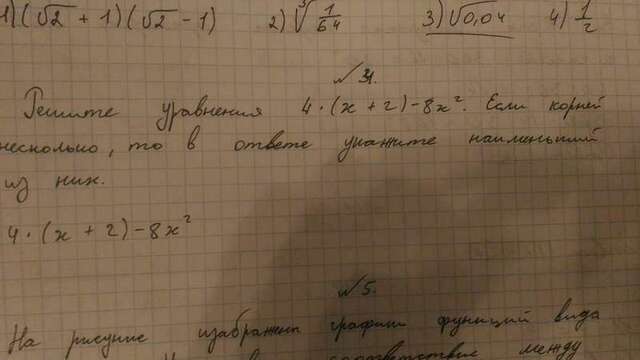 1) (√2 + 1)(√2 - 1) 2) ∛1/64 3) √0,04 4) 1/2
№ 4.
Решите уравнения 4 · (x + 2) - 8x². Если корней
несколько, то в ответе укажите наименьший
из них.
4 · (x + 2) - 8x²
№ 5.
На рисунке изображены графики функций вида
соответствие между